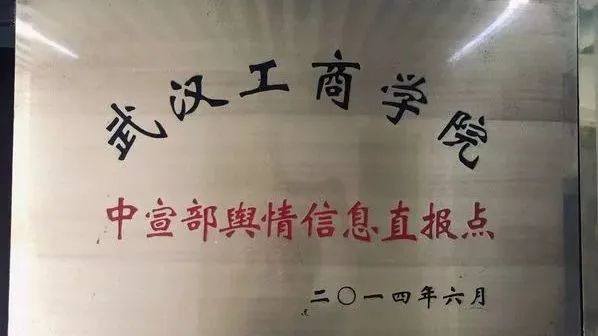 武汉工商学院
中宣部舆情信息直报点
二〇一四年六月